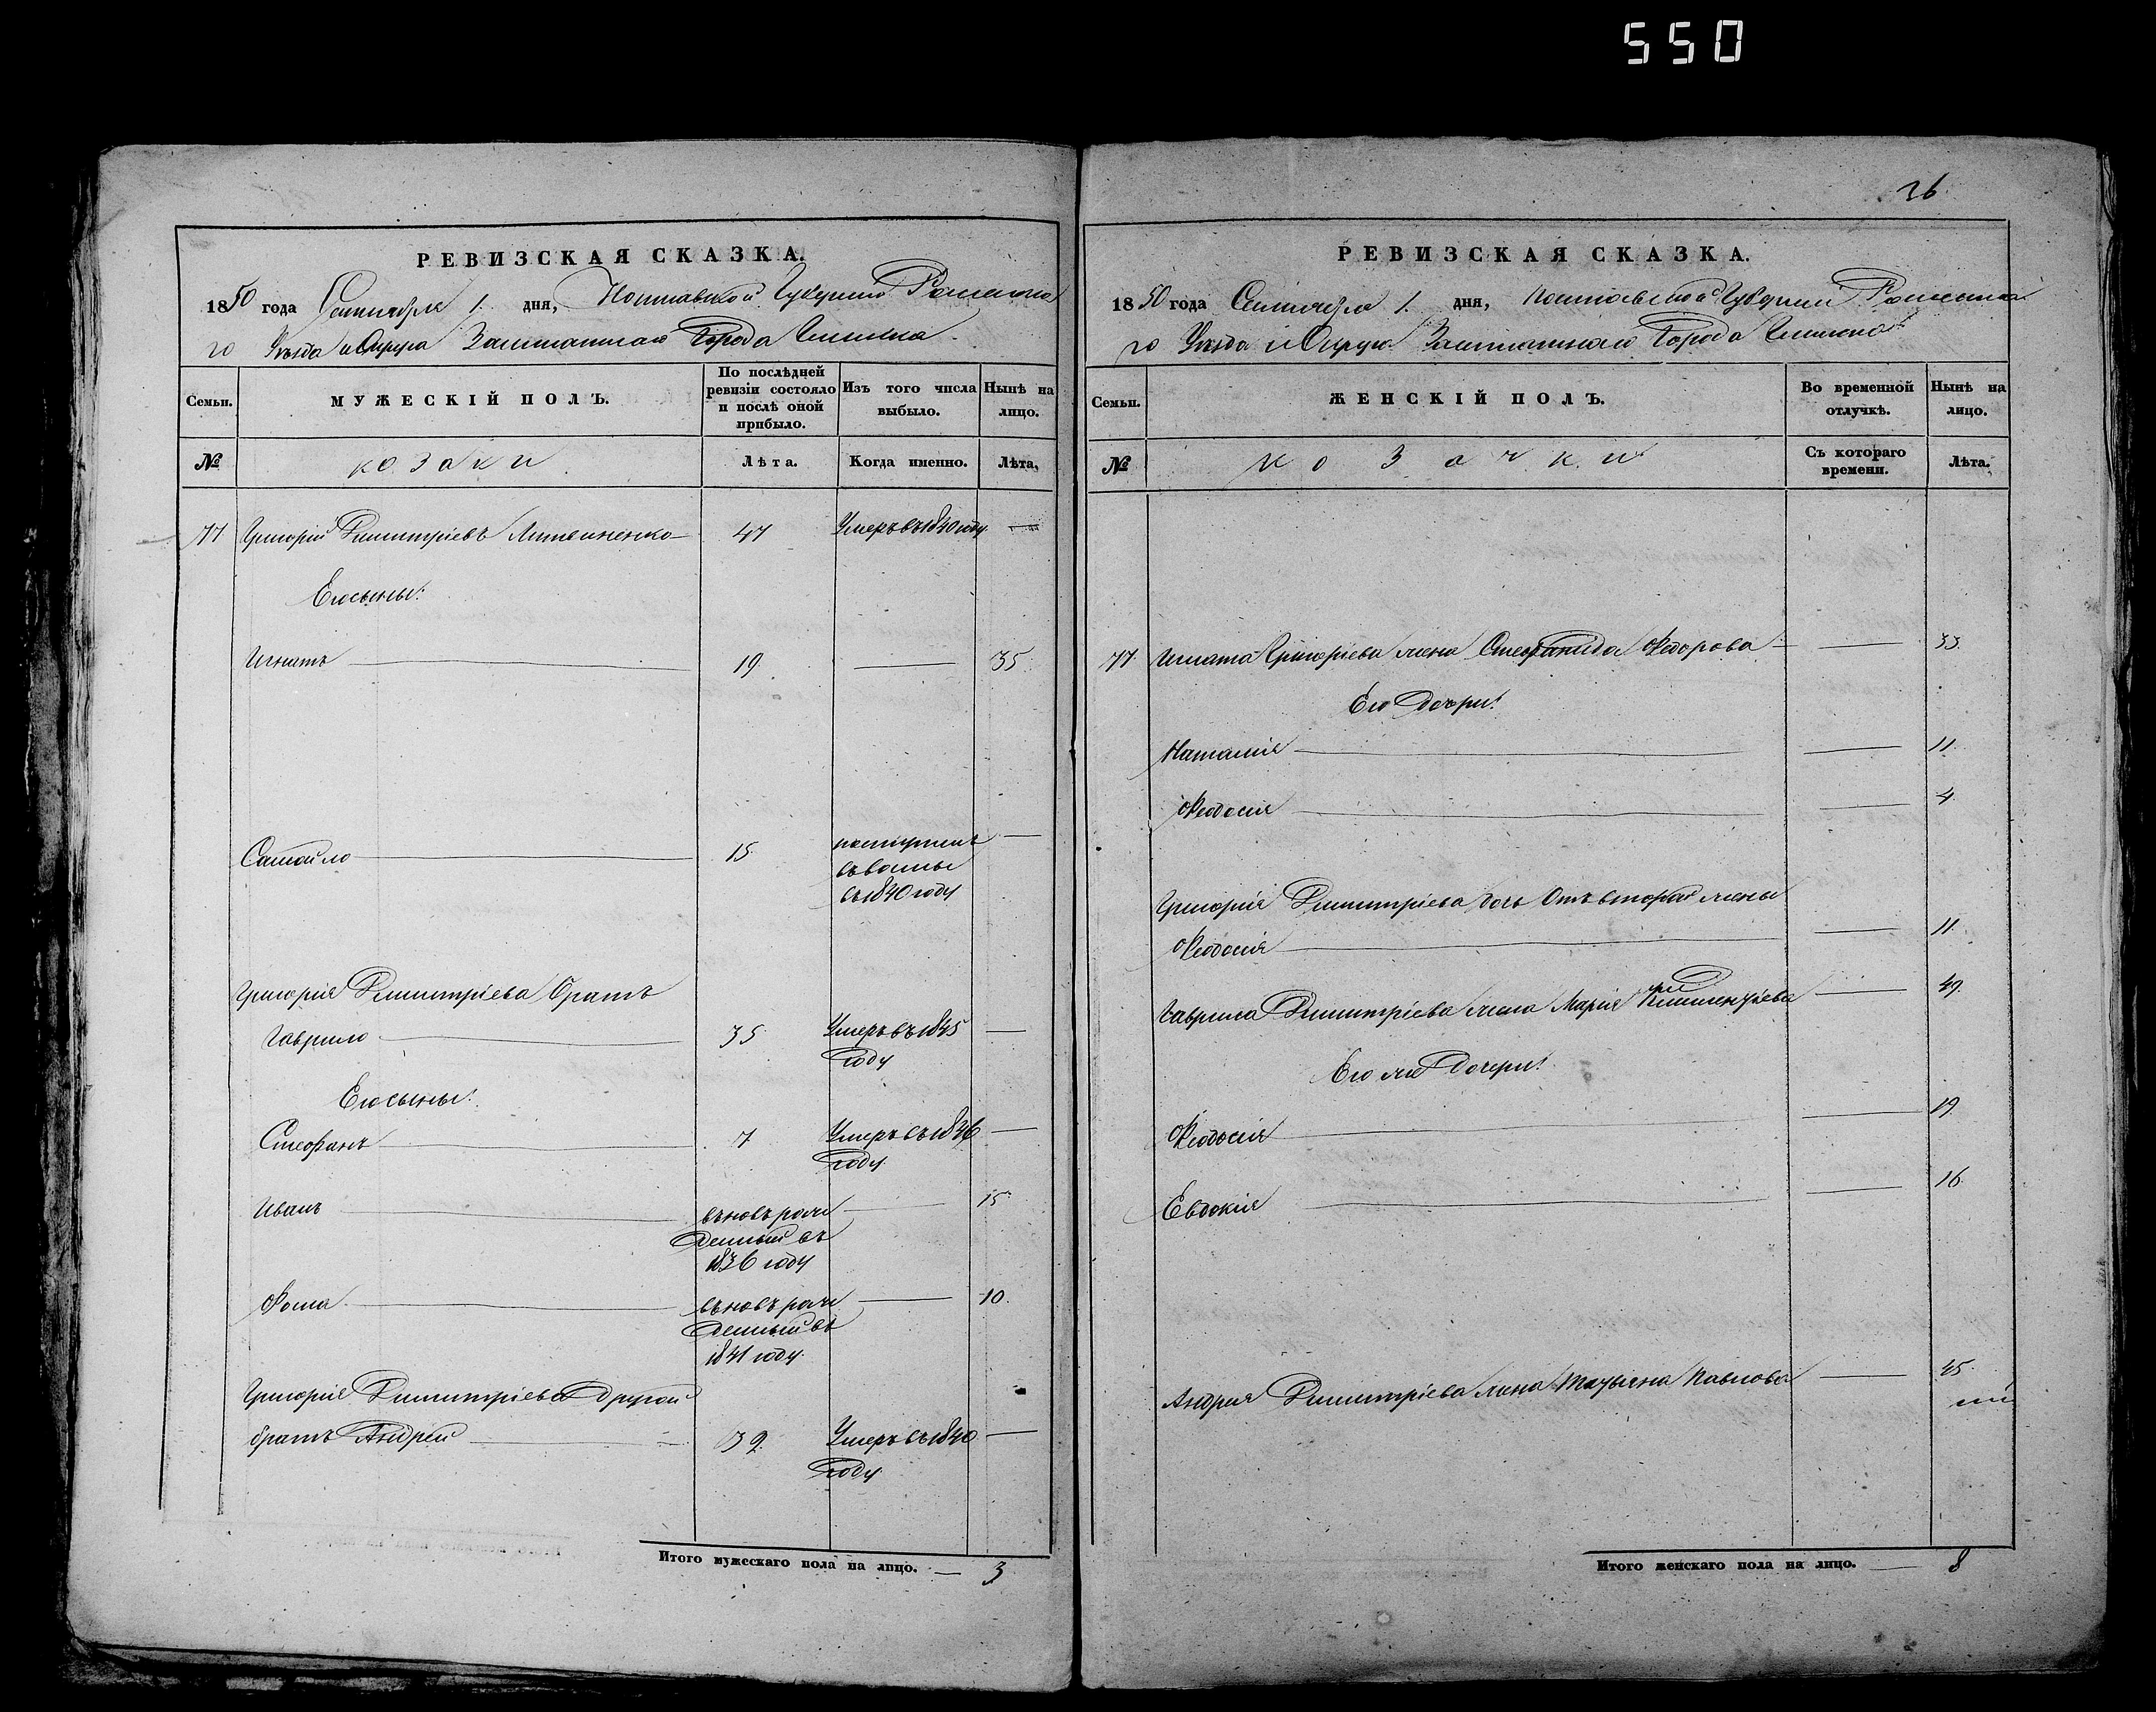 550
РЕВИЗСКАЯ СКАЗКА.
1850 года Сентября 1. дня, Полтавской Губернии Роменска
го Уѣзда и Округа Заштатнаго Города Глинска.
Семьи.
МУЖЕСКІЙ ПОЛЪ.
По послѣдней ревизіи состояло и послѣ оной прибыло.
Изъ того числа выбыло.
Нынѣ на лицо.
№
козаки
Лѣта.
Когда именно.
Лѣта.
77 Григорій Димитріевъ Литвиненко 47 Умеръ въ 1840 году —
Его сыны:
Игнатъ 19. — 35.
Самойло 15. поступилъ —
1840 году
Григорія Димитріева братъ
Гаврило 35 Умеръ въ 1845 —
году
Его сыны:
Стефанъ 7 Умеръ въ 1836 —
году
Иванъ вновь рож — 15.
денный въ
1836 году
Фома вновь рож — 10.
денный въ
1841 году.
Григорія Димитріева другой
братъ Андрей 39. Умеръ въ 1840 —
году
Итого мужескаго пола на лицо. — 3
26
РЕВИЗСКАЯ СКАЗКА.
1850 года Сентября 1. дня, Полтавской Губернии Роменска
го Уѣзда и Округа Заштатнаго Города Глинска
Семьи.
ЖЕНСКІЙ ПОЛЪ.
Во временной отлучкѣ.
Нынѣ на лицо.
№
козачки
Съ котораго времени.
Лѣта.
77. Игната Григоріева жена Стефанида Федорова — 33.
Его Дочри:
Наталія — 11.
Феодосія — 4.
Григорія Димитріева дочь Отъ второй жены
Феодосія — 11.
Гаврила Димитріева жена Марія — 49.
Его же Дочери:
Феодосія — 19
Евдокія — 16.
Андрея Димитріева жена Татьяна Павлова — 45.
Итого женскаго пола на лицо. — 8